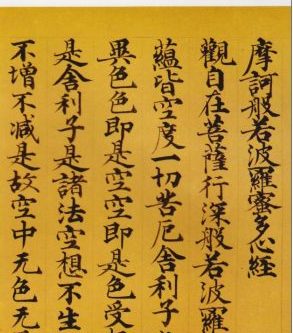 摩訶般若波羅蜜多心經
觀自在菩薩行深般若波羅
蘊皆空度一切苦厄舍利子
異色色即是空空即是色受
是舍利子是諸法空想不生
不增不减是故空中无色无